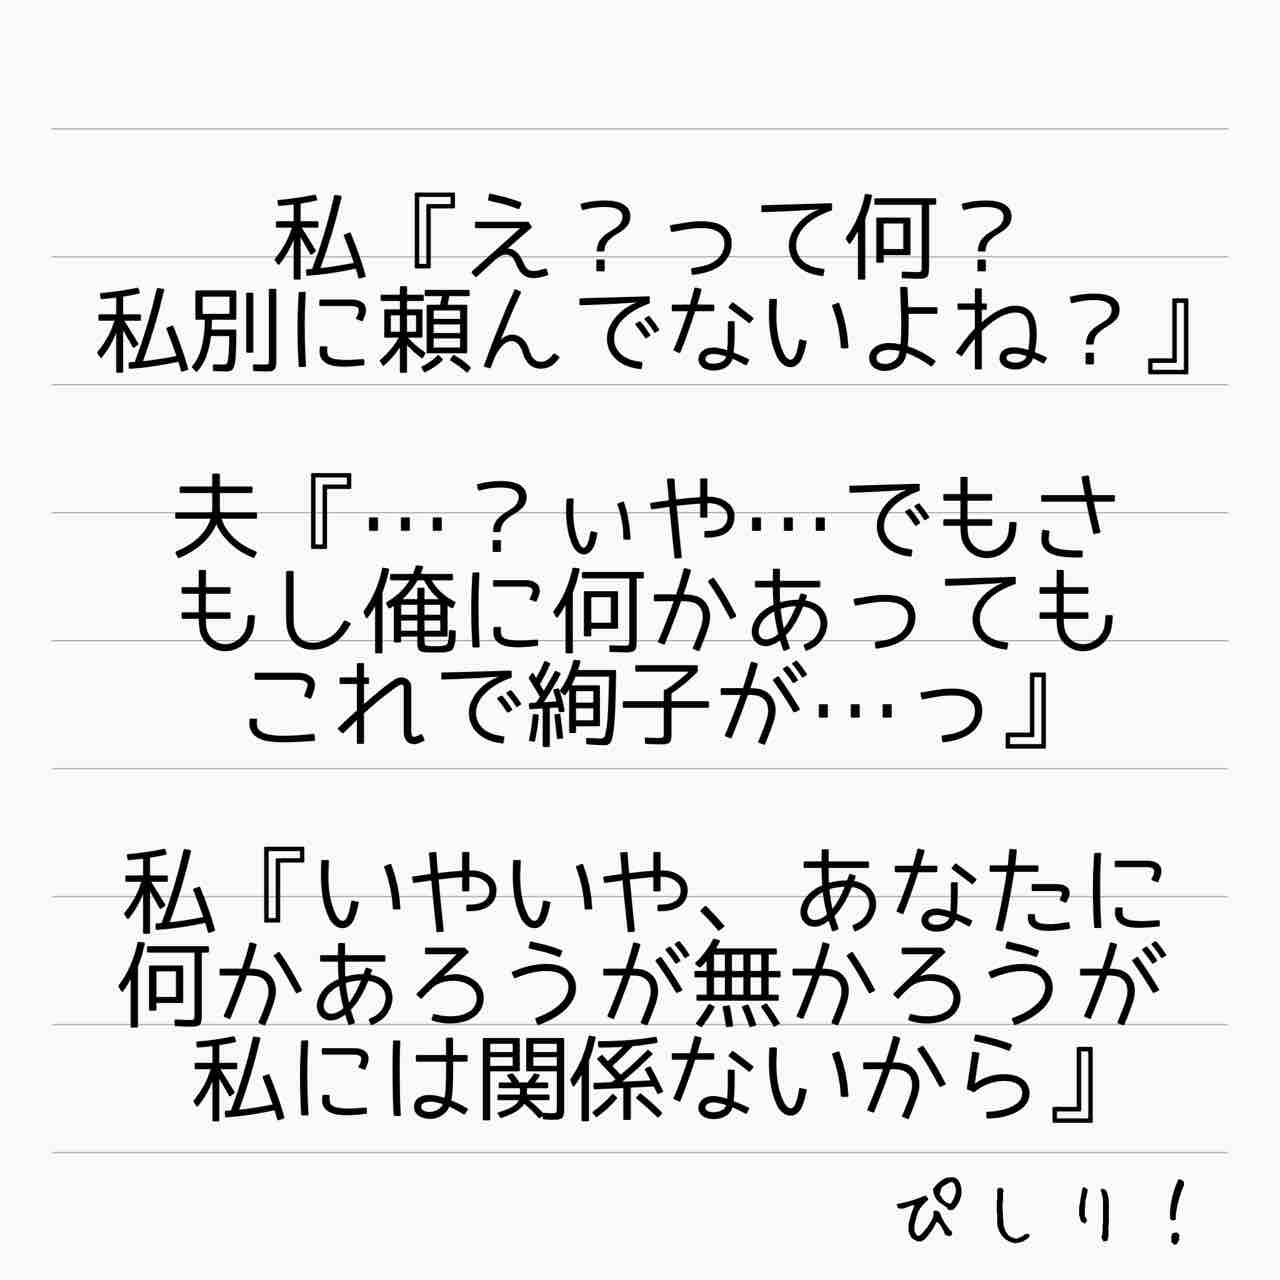 私『え？って何？
私別に頼んでないよね？』
夫『…？ぃや…でもさ
もし俺に何かあっても
これで絢子が…っ』
私『いやいや、あなたに
何かあろうが無かろうが
私には関係ないから』
ぴしり！